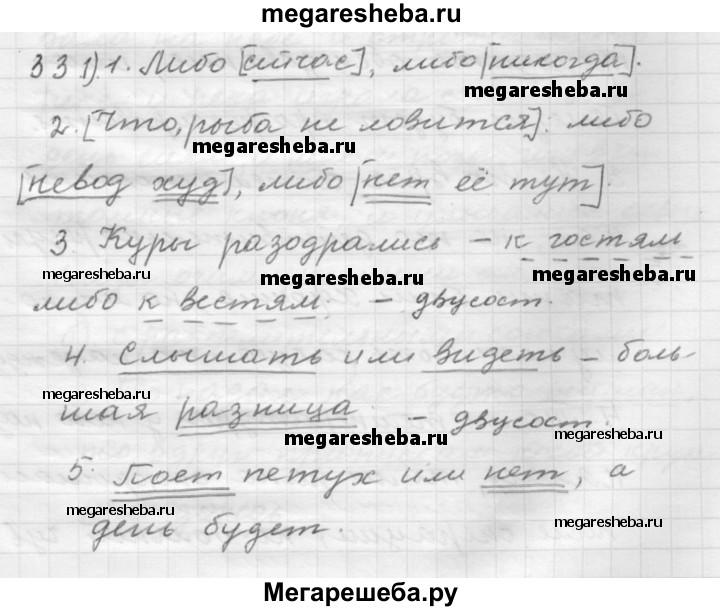 megaresheba.ru
33 1). 1. Либо [сийчас], либо [никогда].
megaresheba.ru
2. [Что, рыба не ловится]: либо
megaresheba.ru
[невод худ], либо [нет её тут].
3. Куры разодрались – к гостям
megaresheba.ru megaresheba.ru megaresheba.ru
либо к вестям. – двусост.
4. Слышать или видеть – боль-
megaresheba.ru
шая разница. – двусост.
megaresheba.ru megaresheba.ru
5. Поет петух или нет, а
megaresheba.ru megaresheba.ru
день будет.
Мегарешеба.ру